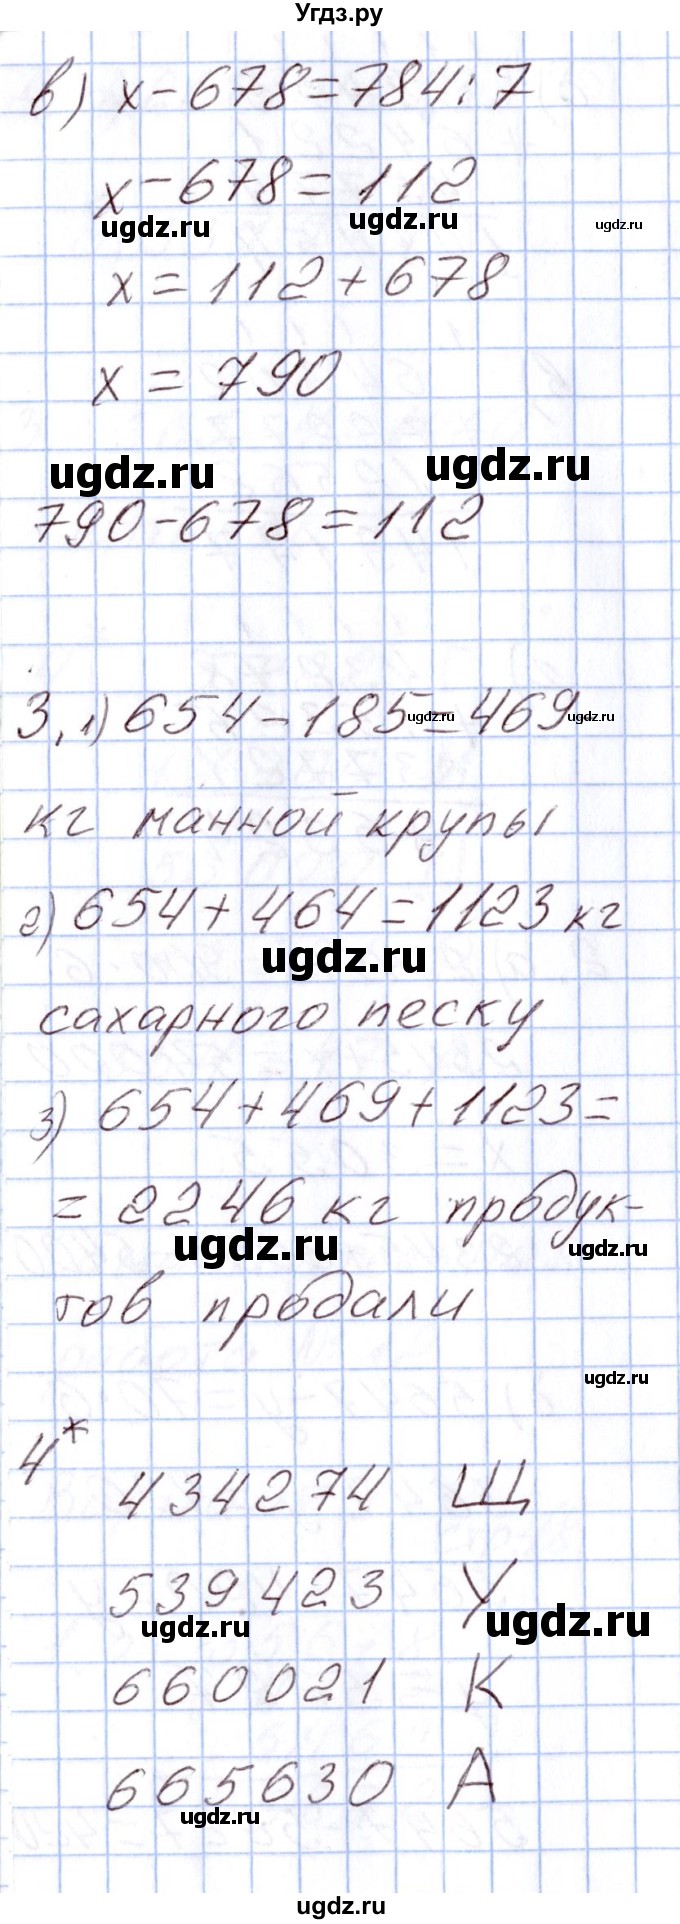 Угдз.ру
в) x-678=784:7
x-678=112
ugdz.ru ugdz.ru ugdz.ru
x=112+678
x=790
ugdz.ru ugdz.ru
790-678=112
3, 1) 654-185=469
ugdz.ru ugdz.ru
кг манной крупы
2) 654+464=1123 кг
ugdz.ru
сахарного песку
3) 654+469+1123=
=2246 кг продук-
ugdz.ru ugdz.ru
тов продали
ugdz.ru
4*
434274 Щ
539423 У
ugdz.ru ugdz.ru
660021 К
665630 А
ugdz.ru
ugdz.ru